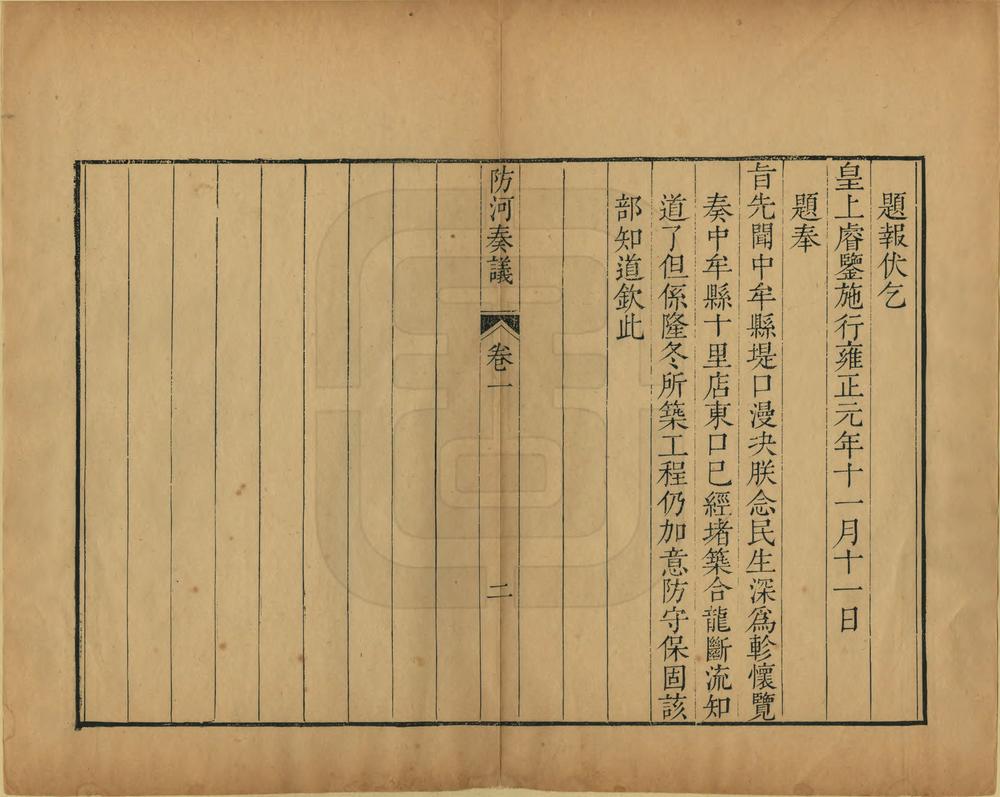 題報伏乞
皇上睿鑒施行雍正元年十一月十一日
題奉
旨先聞中牟縣堤口漫决朕念民生深爲軫懷覽
奏中牟縣十里店東口已經堵築合龍斷流知
道了但係隆冬所築工程仍加意防守保固該
部知道欽此
防河奏議 卷一 二